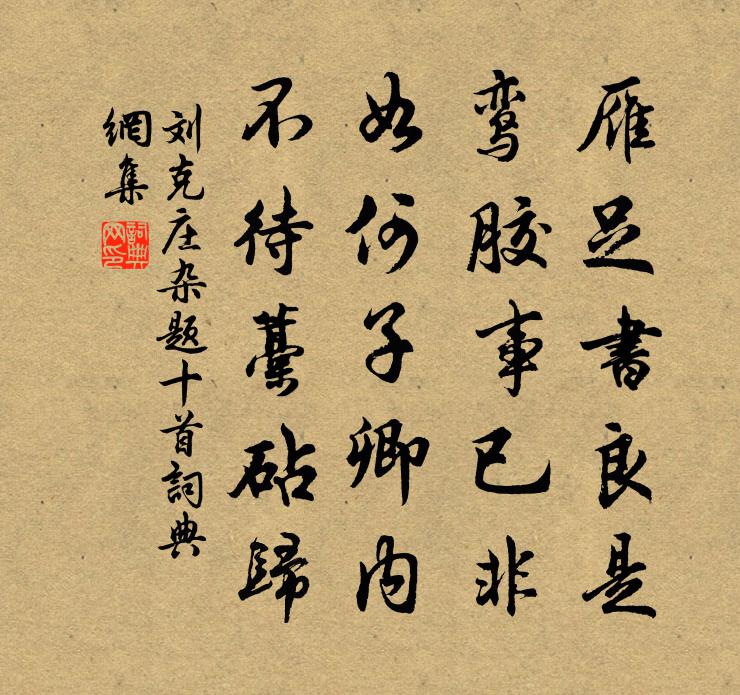 雁足书良是
鸾胶事已非
如何子卿内
不待藁砧归
刘克庄杂题十首詞典
網集
詞典
网印